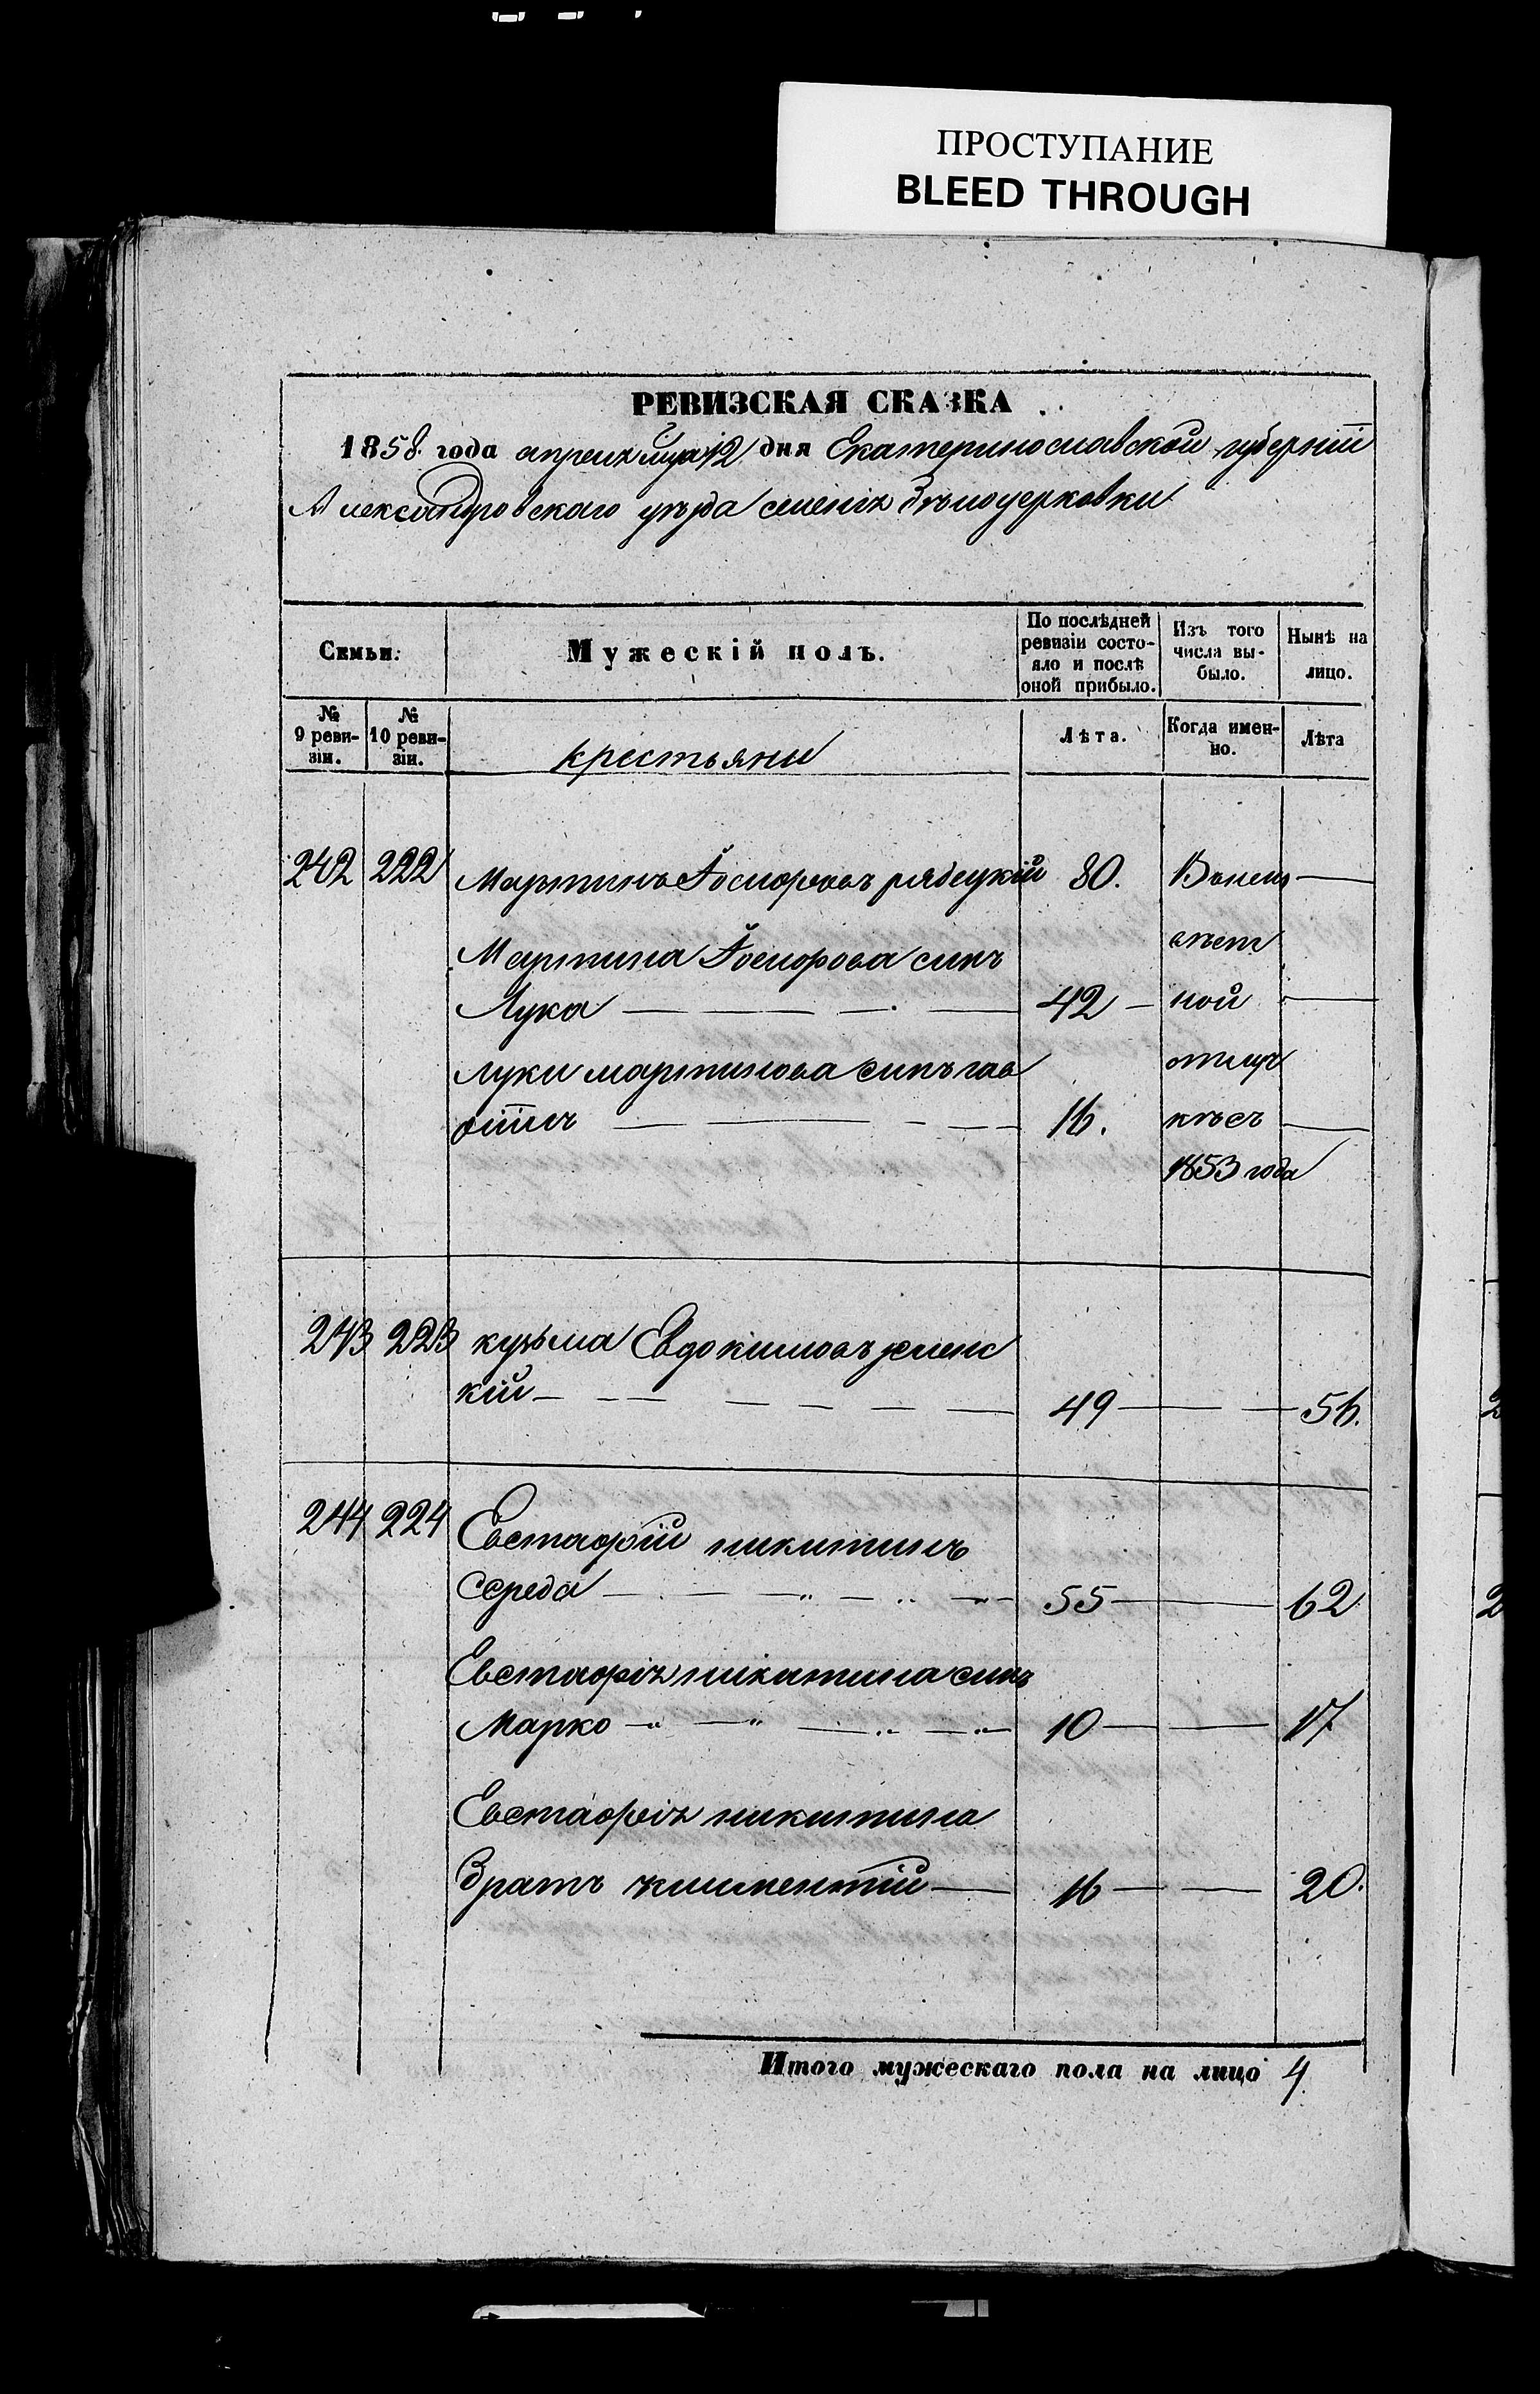 ПРОСТУПАНИЕ
BLEED THROUGH
РЕВИЗСКАЯ СКАЗКА
1858 года апреля мца 12 дня Екатеринославской губерніи
Александровскаго уѣзда селенія Бѣлоцерковки
Семьи.
Мужескій полъ.
По послѣдней ревизіи состо-
яло и послѣ оной прибыло.
Изъ того числа вы-
было.
Ныне на лицо.
№ 9 реви-
зіи.
№ 10 реви-
зіи.
крестьяны
Лѣта.
Когда имен-
но.
Лѣта
242 222 Мартинъ рябецкій 80. —
Мартина синъ
Лука — 42 — ной —
луки мартинова синъ гав
16. отлуч
кѣсъ —
1853 года
243 223 кузьма Евдокимовъ
кій — 49 — — 56.
244 224 Евстафій никитинъ
Середа — 55 — 62
Евстафія никитина синъ
Марко — 10 — — 17
Евстафія никитина
Братъ климентій — 16 — — 20.
Итого мужескаго пола на лицо 4.